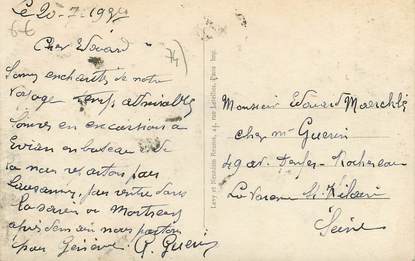 Le 20-7-19
Cher Edouard
Sommes enchantés de notre
voyage temps admirable
Sommes en excursion a
Evian en bateau de
la nous repartons pour
Lausanne, pour rentrer dans
la soirée a Montreux
après demain nous partons
pour Genève R. Guerin
Levy et Neurdein Réunis, 44, rue Letellier, Paris Imp.
Monsieur Edouard
chez Mr Guerin
49 av. Denfer-Rochereau
La Varenne St Hilaire
Seine